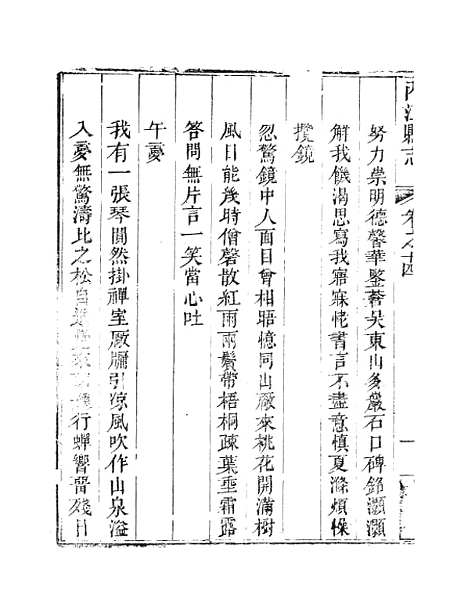 內江縣志 卷之十四
努力崇明德馨華鑒蒼昊東山多巖石口碑錦灝灝
解我饑渴思寫我寤寐恅書言不盡意慎夏滌煩懆
攬鏡
忽驚鏡中人面目曾相晤憶同山廠來桃花開滿樹
風日能幾時僧磬散紅雨兩鬢帶梧桐疎葉垂霜露
答問無片言一笑當心吐
午憂
我有一張琴閒然掛禪室廠牖引涼風吹作山泉溢
入憂無驚濤比之松自 行蟬響晉殘日